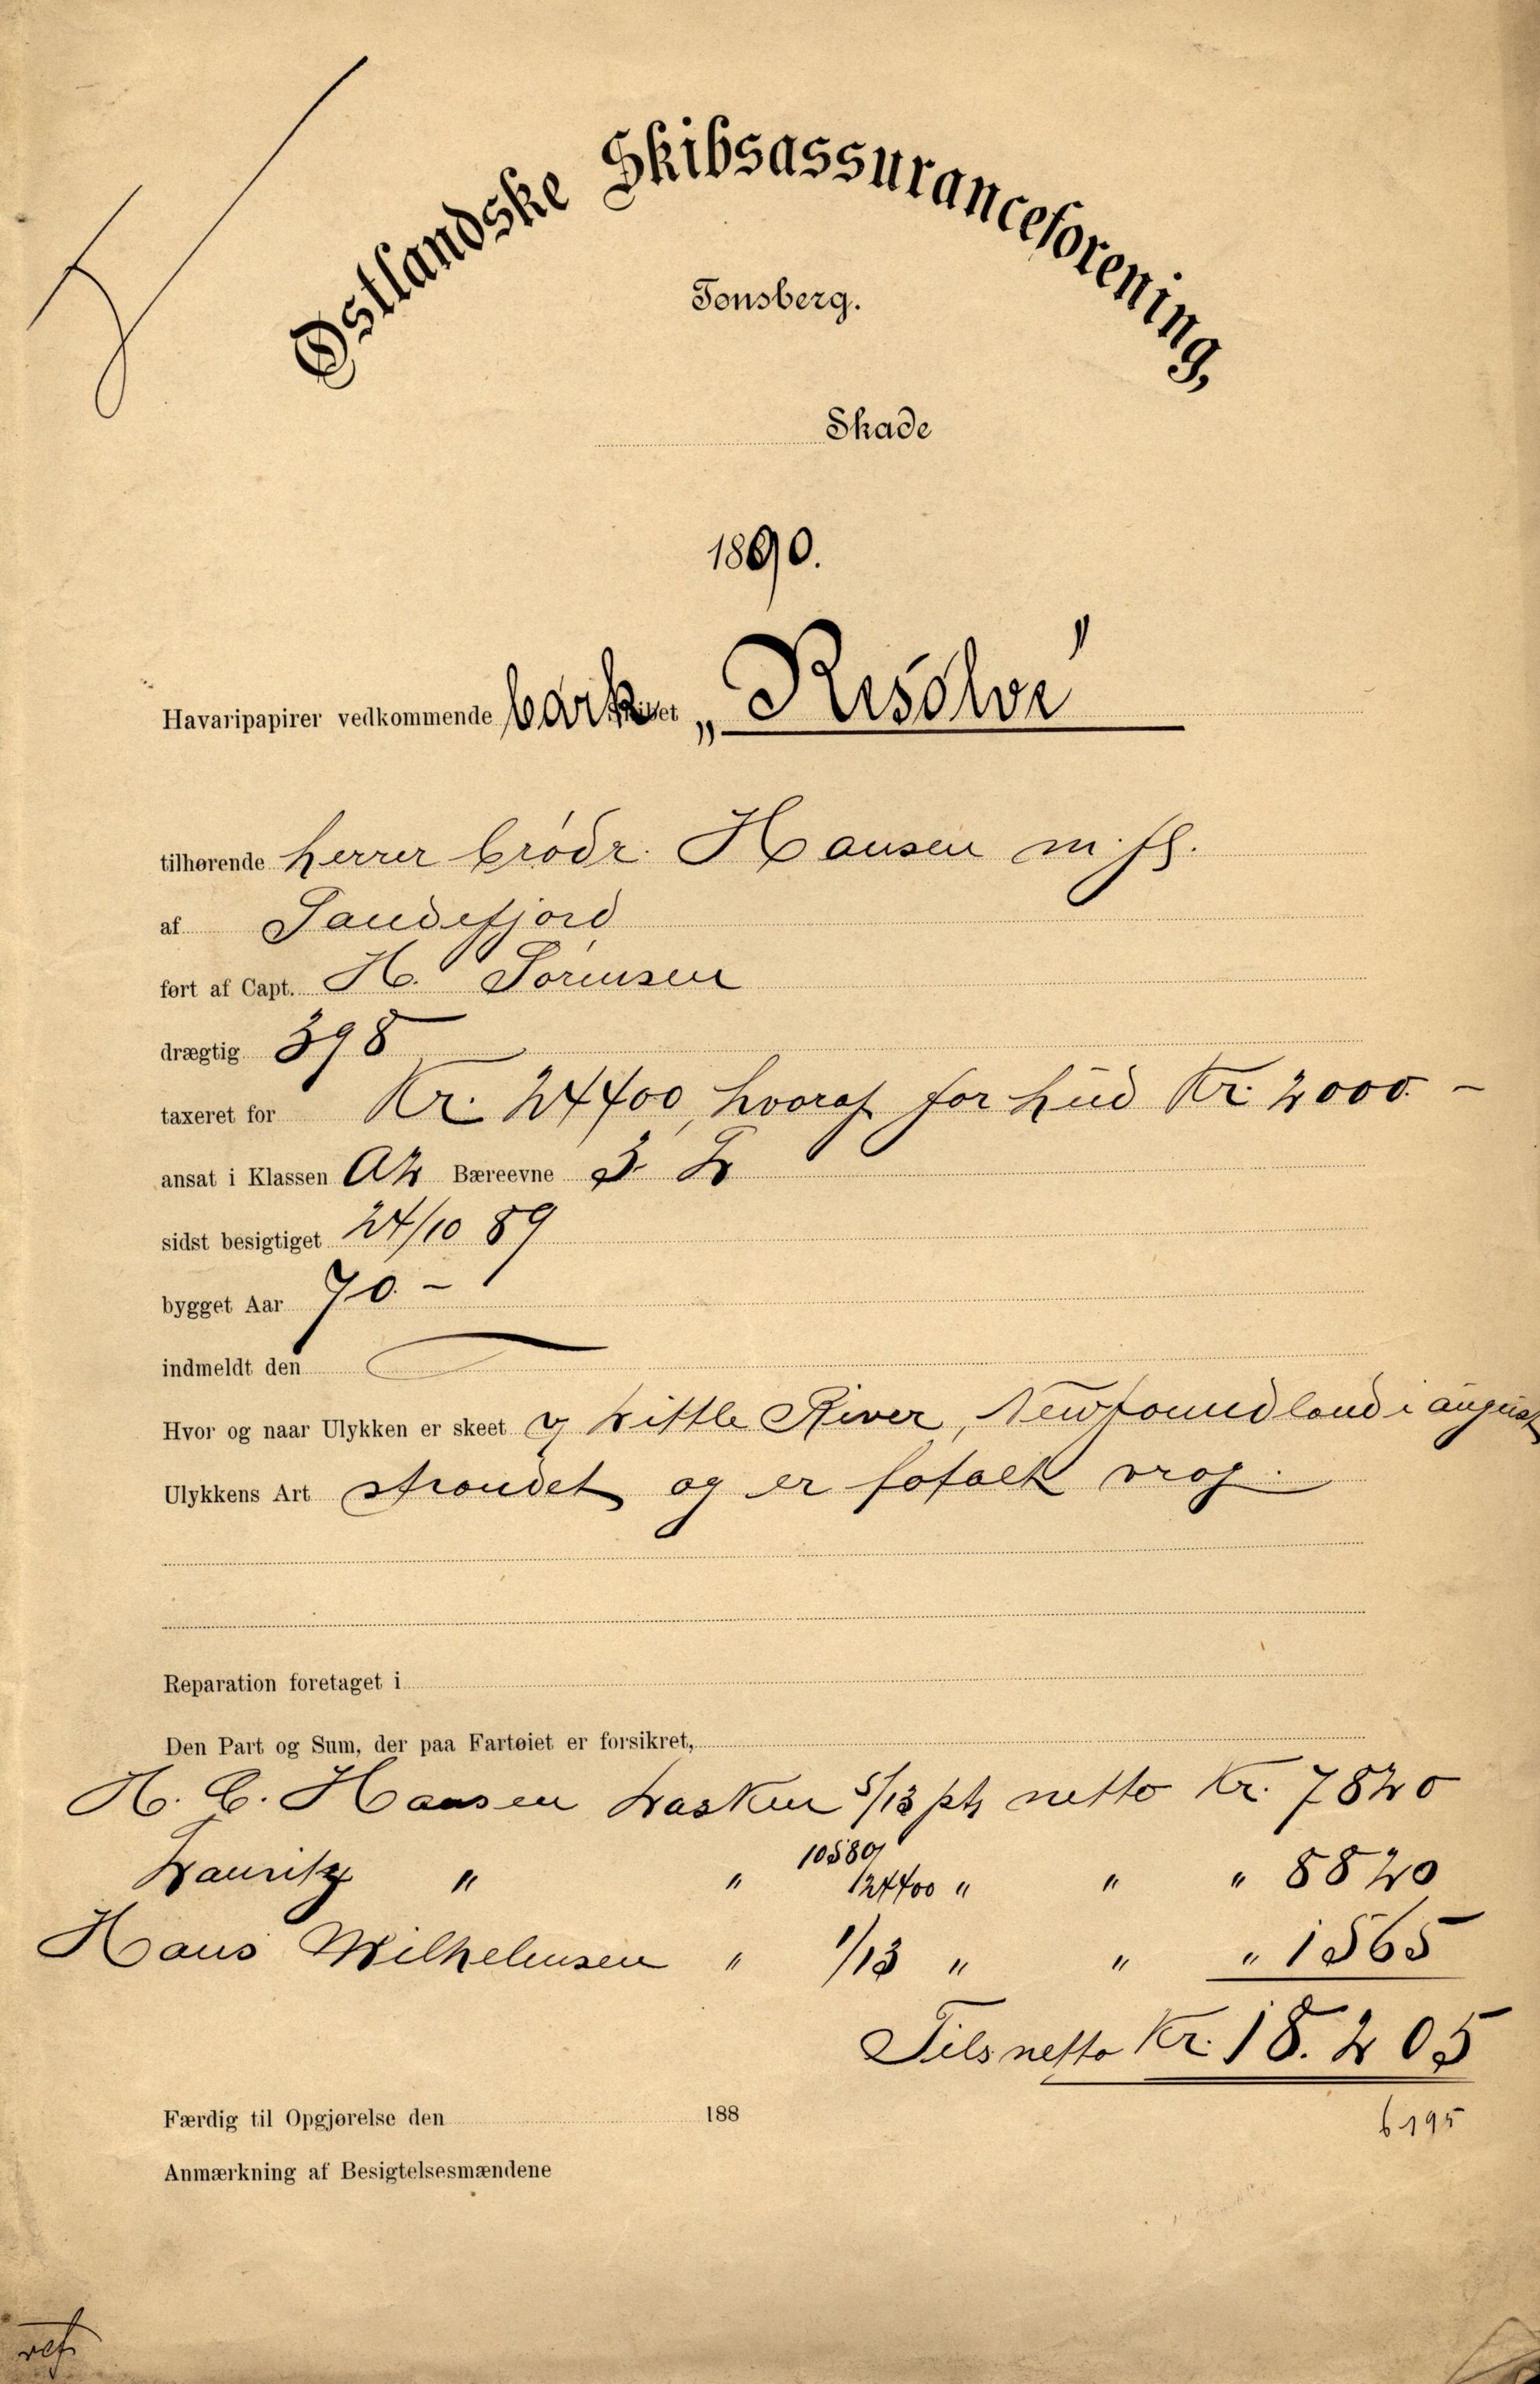 Østlandske Skibsassuranceforening,
Tønsberg.
Skade
1890.
Havaripapirer vedkommende bark „Resolve"
tilhørende herrer brødr. Hansen m. fl.
af Sandefjord
ført af Capt. H. Sørensen
drægtig 398
taxeret for Kr. 24400, hvoraf for hud Kr. 2000. –
ansat i Klassen A2 Bæreevne 3. L
sidst besigtiget 24/10 89
bygget Aar 70. –
indmeldt den
Hvor og naar Ulykken er skeet v Little River, Newfoundland i august
Ulykkens Art strandet og er totalt vrag.
Reparation foretaget i
Den Part og Sum, der paa Fartøiet er forsikret,
H. C. Hansen Kasken 5/13 pts netto Kr. 7820
Lauritz " " 10580/24400 " " " 8820
Hans Wilhelmsen " 1/13 " " " 1565
Tils netto Kr. 18.205
Færdig til Opgjørelse den 188
6195
Anmærkning af Besigtelsesmændene